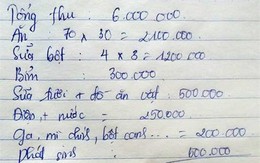 Tổng thu : 6.000.000.
Ăn : 70 x 30 = 2.100.000.
Sữa bột : 4 x 3 = 1200.000
Bỉm : 300.000
Sữa tươi + đồ ăn vặt : 500.000
Điện + nước = 250.000
Ga, mì chính, bột canh... = 200.000
Phát sinh : 500.000